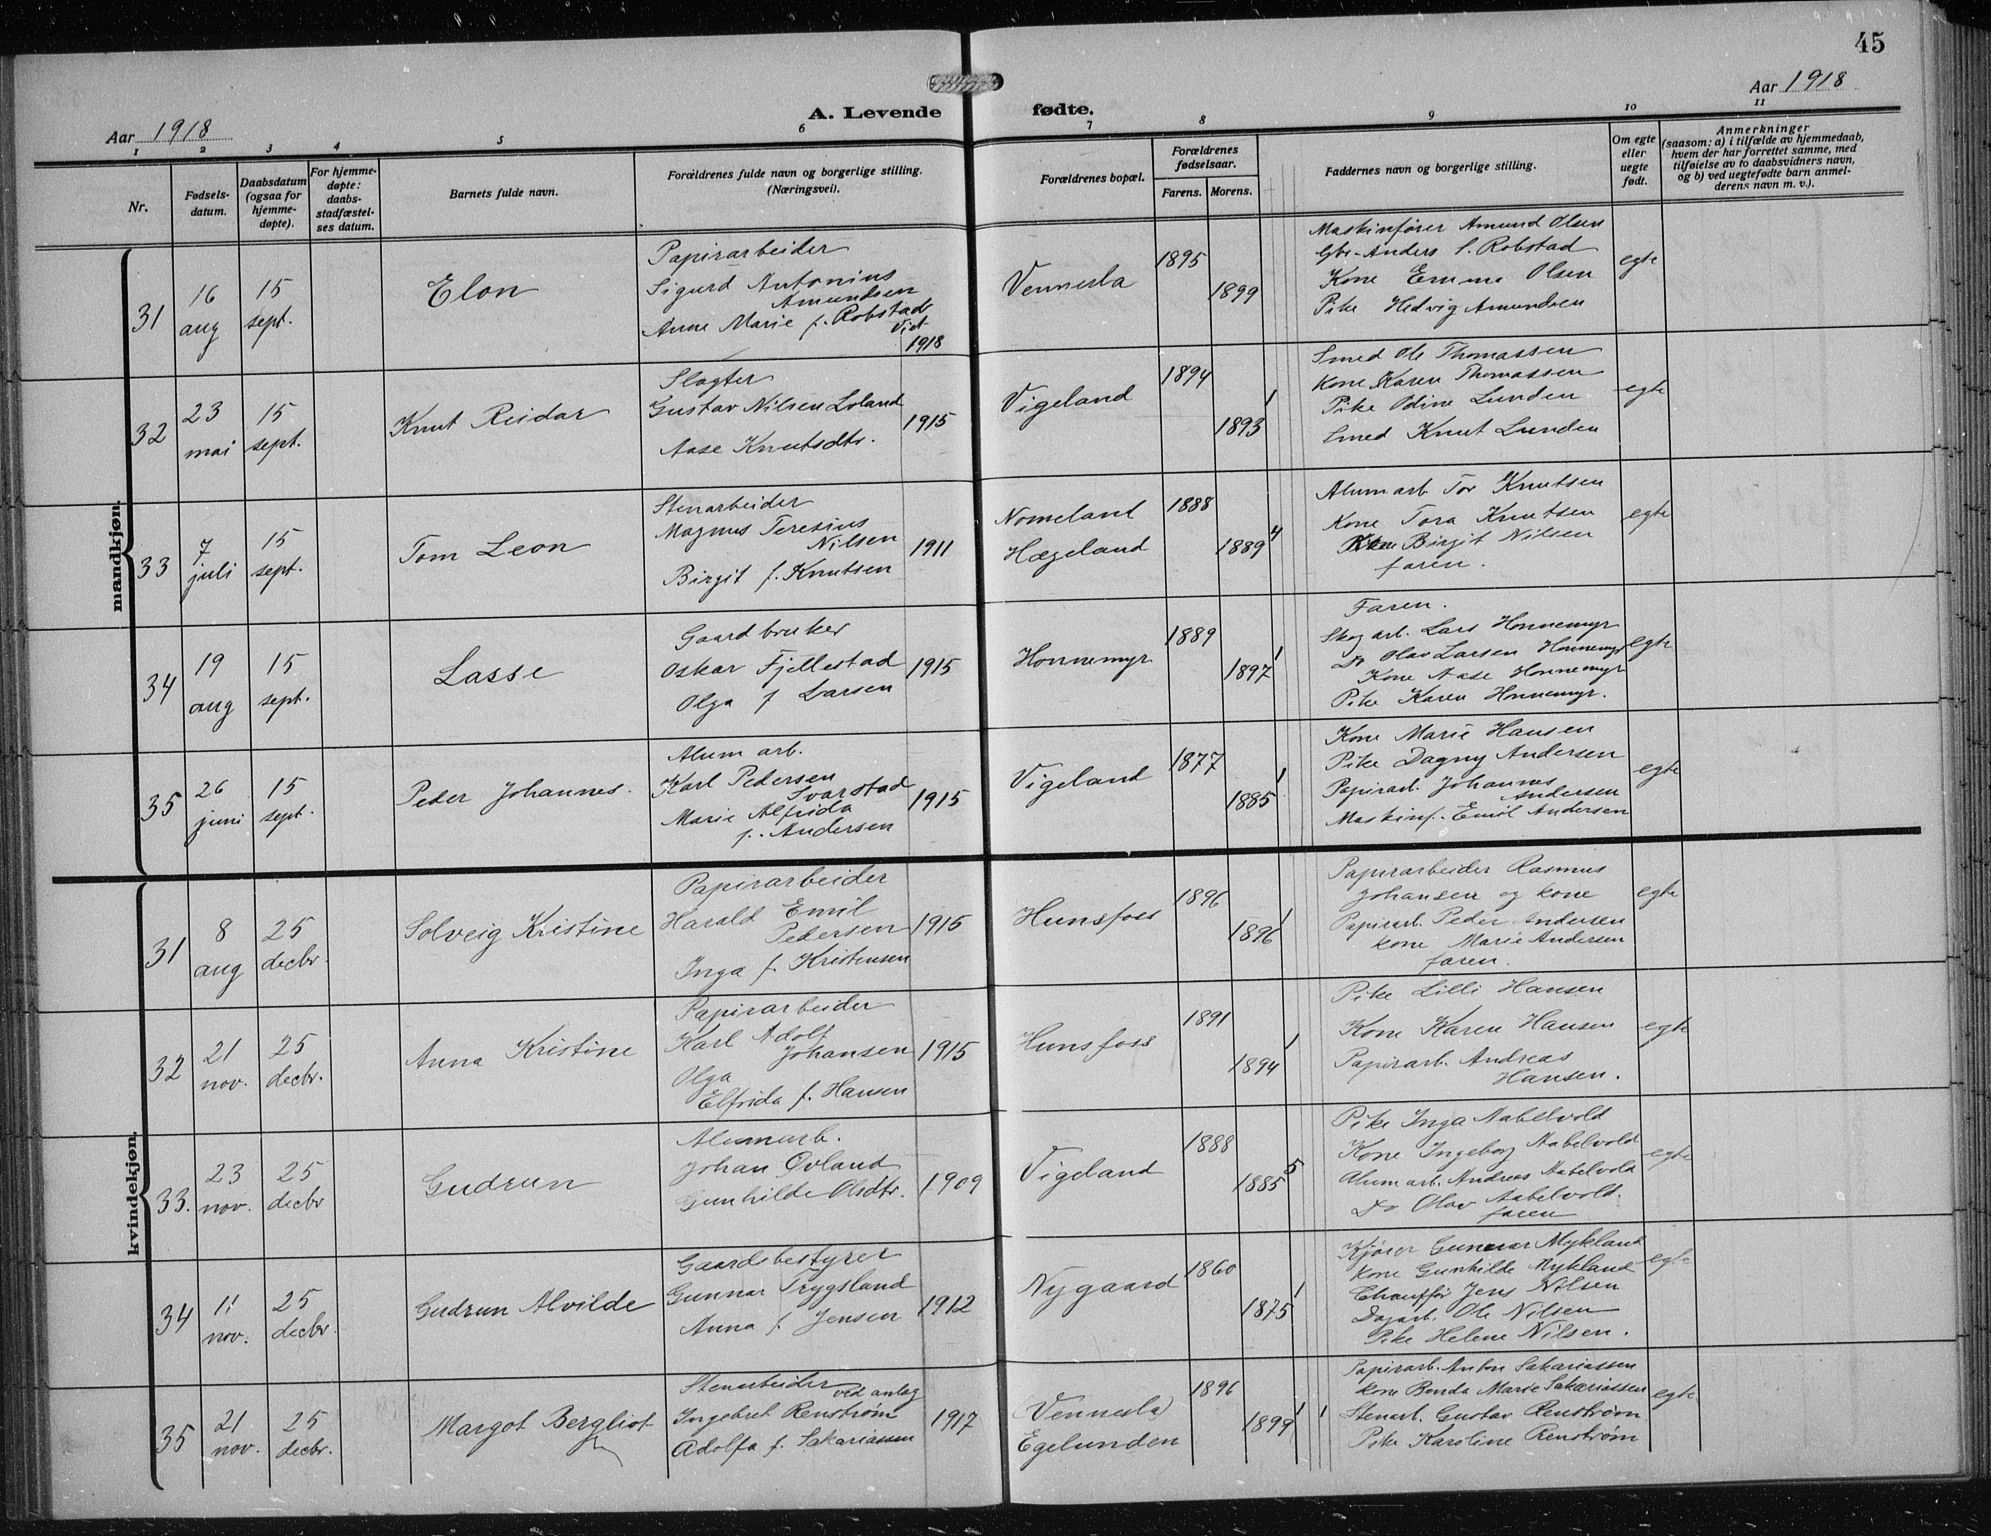 45
Aar 1918
A. Levende fødte.
Aar 1918
1 2 3 4 5 6 7 8 9 10 11
Nr.
Fødsels-
datum.
Daabsdatum
(ogsaa for
hjemme-
døpte).
For hjemme-
døpte:
daabs-
stadfæstel-
ses datum.
Barnets fulde navn.
Forældrenes fulde navn og borgerlige stilling.
(Næringsvei).
Forældrenes bopæl.
Forældrenes
fødselsaar.
Farens. Morens.
Faddernes navn og borgerlige stilling.
Om egte
eller
uegte
født.
Anmerkninger
(saasom: a) i tilfælde av hjemmedaab,
hvem der har forrettet samme, med
tilføielse av to daabsvidners navn,
og b) ved uegtefødte barn anmel-
derens navn m. v.).
mandkjøn.
31
16
aug
15
sept.
Elon
Papirarbeider
Sigurd Antonius
Amundsen
Anne Marie f. Robstad
Viet
1918
Vennesla
1895
1899
Maskinfører Amund Olsen
Gbr. Anders S. Robstad
Kone Emma Olsen
Pike Hedvig Amundsen
egte
32
23
mai
15
sept.
Knut Reidar
Slagter
Gustav Nilsen Loland
Aase Knutsdtr.
1915
Vigeland
1894
1893
1
Smed Ole Thomassen
Kone Karen Thomassen
Pike Odine Lunden
Smed Knut Lunden
egte
33
7
juli
15
sept.
Tom Leon
Stenarbeider
Magnus Teresius
Nilsen
Birgit f. Knutsen
1911
Nomeland
Hægeland
1888
1889
4
Alumarb. Tor Knutsen
Kone Tora Knutsen
Birgit Nilsen
faren.
egte
34
19
aug
15
sept.
Lasse
Gaardbruker
Oskar Fjellestad
Olga f Larsen
1915
Honnemyr
1889
1897
1
Faren.
Skogarb. Lars Honnemyr
Do Olav Larsen Honnemyr
Kone Aase Honnemyr
Pike Karen Honnemyr.
egte
35
26
juni
15
sept.
Peder Johannes.
Alum arb.
Karl Pedersen
Svarstad
Marie Alfrida
f. Andersen
1915
Vigeland
1877
1885
1
Kone Marie Hansen
Pike Dagny Andersen
Papirarb. Johannes
Andersen
Maskinf. Emil Andersen
egte
kvindekjøn.
31
8
aug
25
decbr.
Solveig Kristine
Papirarbeider
Harald Emil
Pedersen
Inga f. Kristensen
1915
Hunsfoss
1896
1896
1
Papirarbeider Rasmus
Johansen og kone
Papirarb. Peder Andersen
kone Marie Andersen
faren.
egte
32
21
nov.
25
decbr.
Anna Kristine
Papirarbeider
Karl Adolf
Johansen
Olga
Elfrida f. Hansen
1915
Hunsfoss
1891
1894
1
Pike Lilli Hansen
Kone Karen Hansen
Papirarb. Andreas
Hansen.
egte
33.
23
nov.
25
decbr
Gudrun
Alumarb.
Johan Øvland
Gunhilde Olsdtr.
1909
Vigeland
1888
1885
5
Pike Inga Aabelvold
Kone Ingeborg Aabelvold
Alumarb. Andreas Aabelvold
Do Olav Aabelvold.
faren
egte
34
11
nov.
25
decbr.
Gudrun Alvilde
Gaardsbestyrer
Gunnar Trygsland
Anna f. Jensen
1912
Nygaard
1860
1875
1
Kjører Gunnar Mykland
kone Gunhilde Mykland
Chauffør Jens Nilsen
Dagarb. Ole Nilsen
Pike Helene Nilsen.
egte
35
21
nov.
25
decbr.
Margot Bergliot
Stenarbeider ved anlag
Ingebret Renstrøm
Adolfa f. Sakariassen
1917
(Vennesla)
Egelunden
1896
1899
1 1
Papirarb. Anton Sakariassen
kone Benda Marie Sakariassen
Stenarb. Gustav Renstrøm
Pike Karoline Renstrøm
egte